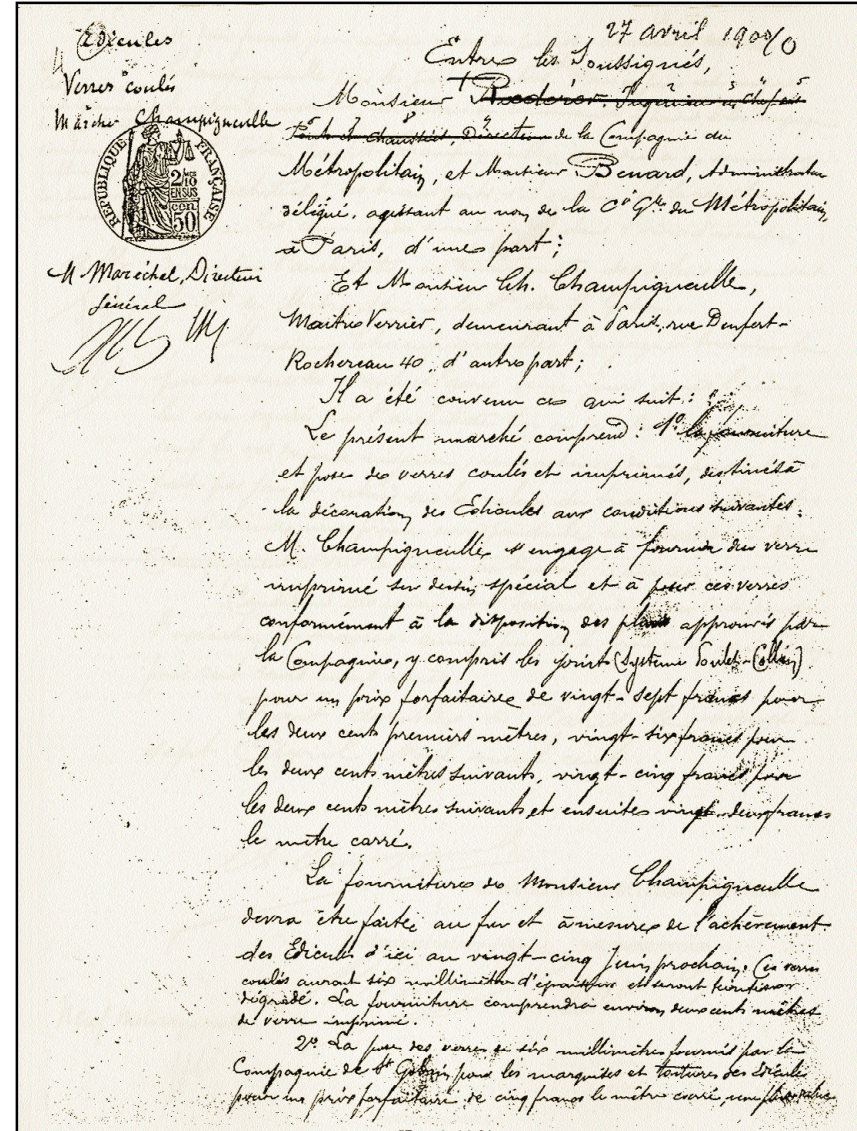 Edicules
Verres coulés
Marché Champigneulle
RÉPUBLIQUE FRANÇAISE
2/10 EN SUS
50 cen
M Maréchal, Directeur
général
27 avril 1900
Entre les Soussignés,
Monsieur Ingénieur en Chef des
Ponts et Chaussées, Directeur de la Compagnie du
Métropolitain, et Monsieur Benard, Administrateur
délégué, agissant au nom de la Cie Gle du Métropolitain,
à Paris, d'une part;
Et Monsieur Ch. Champigneulle,
Maître Verrier, demeurant à Paris, rue Denfert-
Rochereau 40, d'autre part;
Il a été convenu ce qui suit:
Le présent marché comprend: 1º la fourniture
et pose de verres coulés et imprimés, destinés à
la décoration des Edicules aux conditions suivantes:
M. Champigneulle s'engage à fournir du verre
imprimé sur dessin spécial et à poser ces verres
conformément à la disposition des plans approuvés par
la Compagnie, y compris les joints (Système
pour un prix forfaitaire de vingt-sept francs pour
les deux cents premiers mètres, vingt-six francs pour
les deux cents mètres suivants, vingt-cinq francs pour
les deux cents mètres suivants et ensuite vingt-deux francs
le mètre carré.
La fourniture de Monsieur Champigneulle
devra être faite au fur et à mesure de l'achèvement
des Edicules d'ici au vingt-cinq Juin prochain. Ces verres
coulés auront six millimètres d'épaisseur et seront
dégradé. La fourniture comprendra environ deux cents mètres
de verre imprimé.
2º La pose des verres de six millimètres fournis par la
Compagnie de St Gobain pour les marquises et toitures des Edicules
pour un prix forfaitaire de cinq francs le mètre carré, une plus value